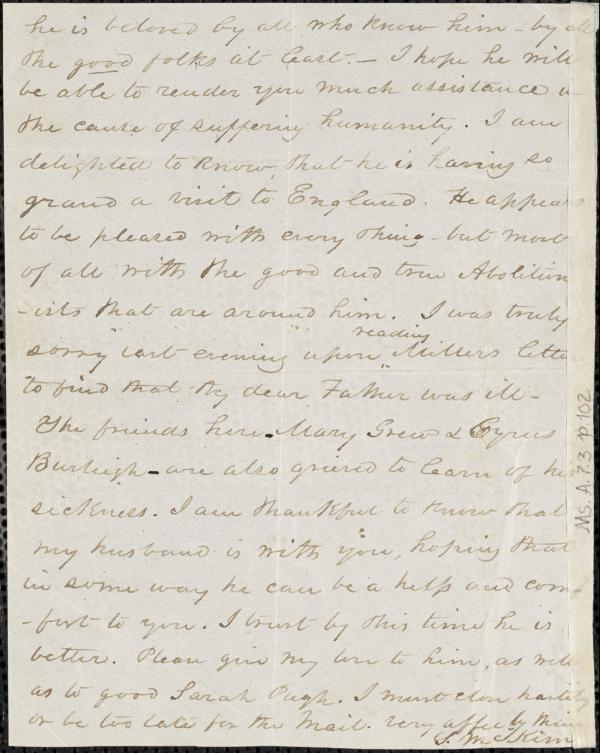 he is beloved by all who know him - by all
the good folks at least. - I hope he will
be able to render you much assistance in
the cause of suffering humanity. I am
delighted to know, that he is having so
grand a visit to England. He appears
to be pleased with every thing - but most
of all with the good and true Abolition
-ists that are around him. I was truly
reading
sorry last evening upon Millers letter
to find that thy dear Father was ill -
The friends here - Mary Grew & Cyrus
Burleigh - are also grieved to learn of his
sickness. I am thankful to know that
my husband is with you, hoping that
in some way he can be a help and com
-fort to you. I trust by this time he is
better. Please give my love to him, as well
as to good Sarah Pugh. I must close hastily
or be too late for the Mail. very affecly thine
S. McKim
Ms. A. 7.3 p. 102